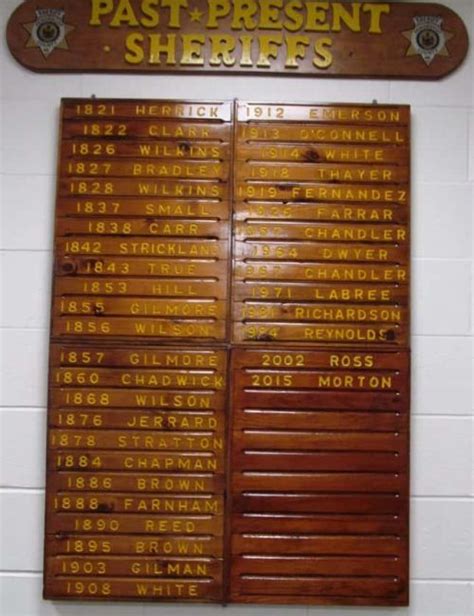 PAST★PRESENT
SHERIFFS
1821 HERRICK
1822 CLARK
1826 WILKINS
1827 BRADLEY
1828 WILKINS
1837 SMALL
1838 CARR
1842 STRICKLAND
1843 TRUE
1853 HILL
1855 GILMORE
1856 WILSON
1857 GILMORE
1860 CHADWICK
1868 WILSON
1876 JERRARD
1878 STRATTON
1884 CHAPMAN
1886 BROWN
1888 FARNHAM
1890 REED
1895 BROWN
1903 GILMAN
1908 WHITE
1912 EMERSON
1913 O'CONNELL
1914 WHITE
1918 THAYER
1919 FERNANDEZ
1926 FARRAR
CHANDLER
1964 DWYER
CHANDLER
1971 LABREE
1981 RICHARDSON
1984 REYNOLDS
2002 ROSS
2015 MORTON